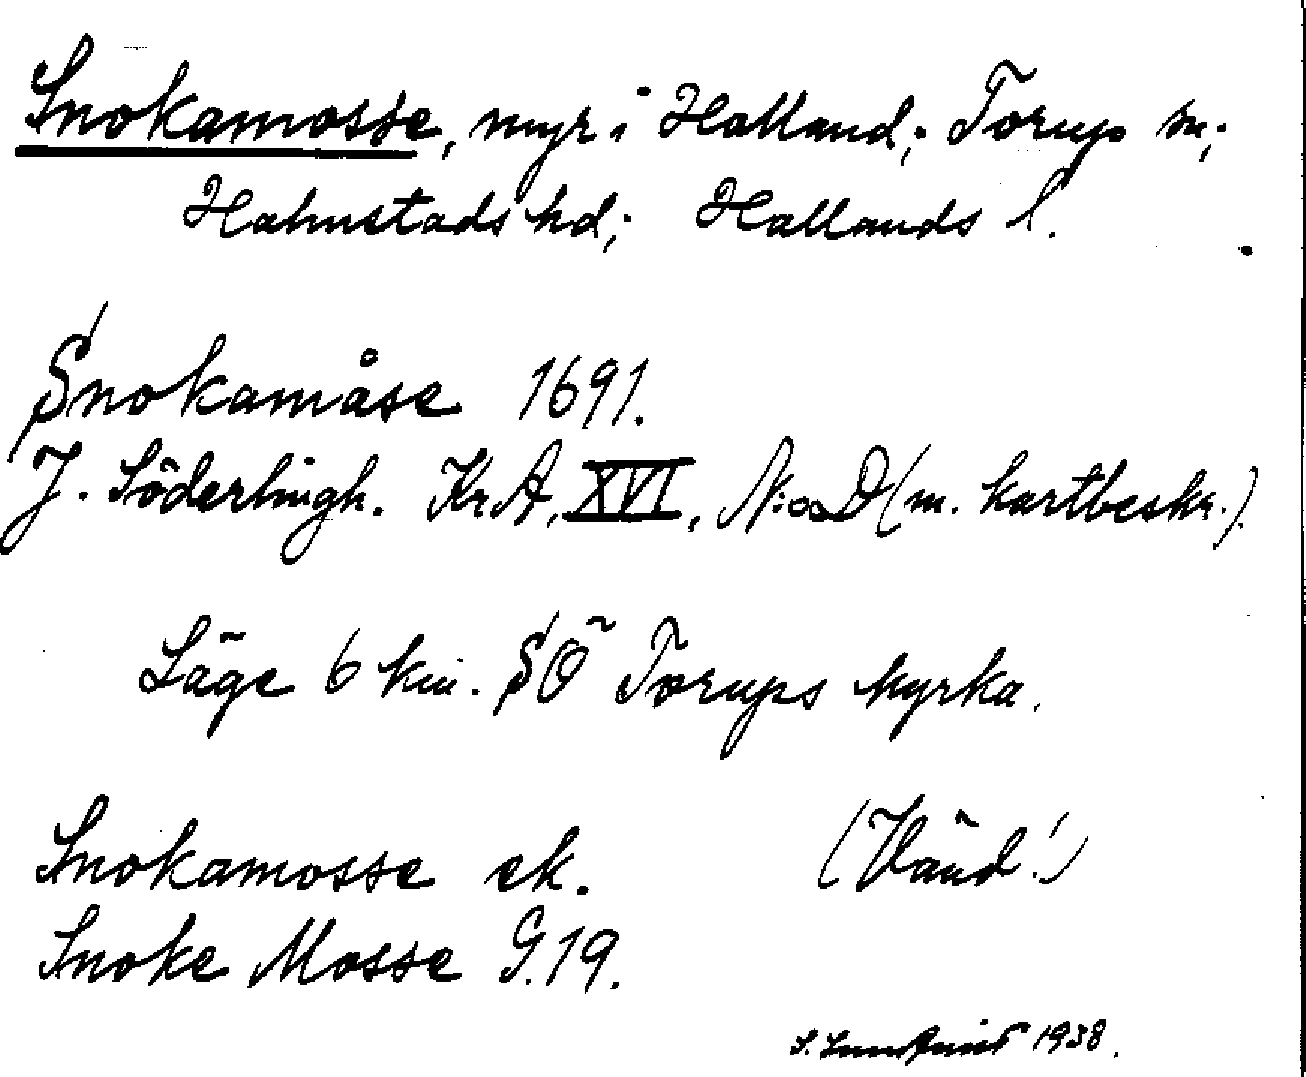 Snokamosse, myr i Halland; Torup sn;
Halmstads hd; Hallands l.
Snokamåse 1691.
J. Söderlingh. KrA, XVI, N:o D (m. kartbeskr.).
Läge 6 km. SÖ Torups kyrka.
Snokamosse ek. (Vänd!)
Snoke Mosse G.19.
S. 1938.